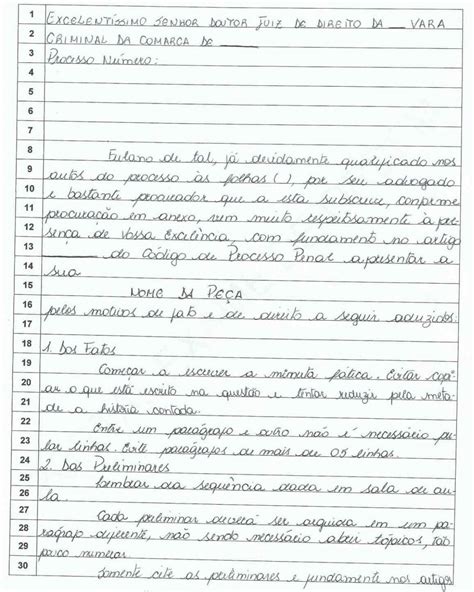 1 EXCELENTÍSSIMO SENHOR DOUTOR JUIZ DE DIREITO DA __ VARA
2 CRIMINAL DA COMARCA DE ________
3 Processo Número:
4
5
6
7
8 Fulano de tal, já devidamente qualificado nos
9 autos do processo às folhas ( ), por seu advogado
10 e bastante procurador que a esta subscreve, conforme
11 procuração em anexo, vem muito respeitosamente à pre
12 sença de Vossa Excelência, com fundamento no artigo
13 ________ do Código de Processo Penal apresentar a
14 sua
15 NOME DA PEÇA
16 pelos motivos de fato e de direito a seguir aduzidos.
17
18 1. Dos Fatos
19 Começar a escrever a minuta fática. Evitar copi
20 ar o que está escrito na questão e tentar reduzir pela meta
21 de a história contada.
22 Entre um parágrafo e outro não é necessário pu
23 lar linhas. Evite parágrafos de mais de 05 linhas.
24 2. Das Preliminares
25 Lembrar da sequência dada em sala de au
26 la.
27 Cada preliminar deverá ser arguida em um pa
28 rágrafo diferente, não sendo necessário abrir tópicos, tam
29 pouco numerar.
30 Somente cite as preliminares e fundamente nos artigos